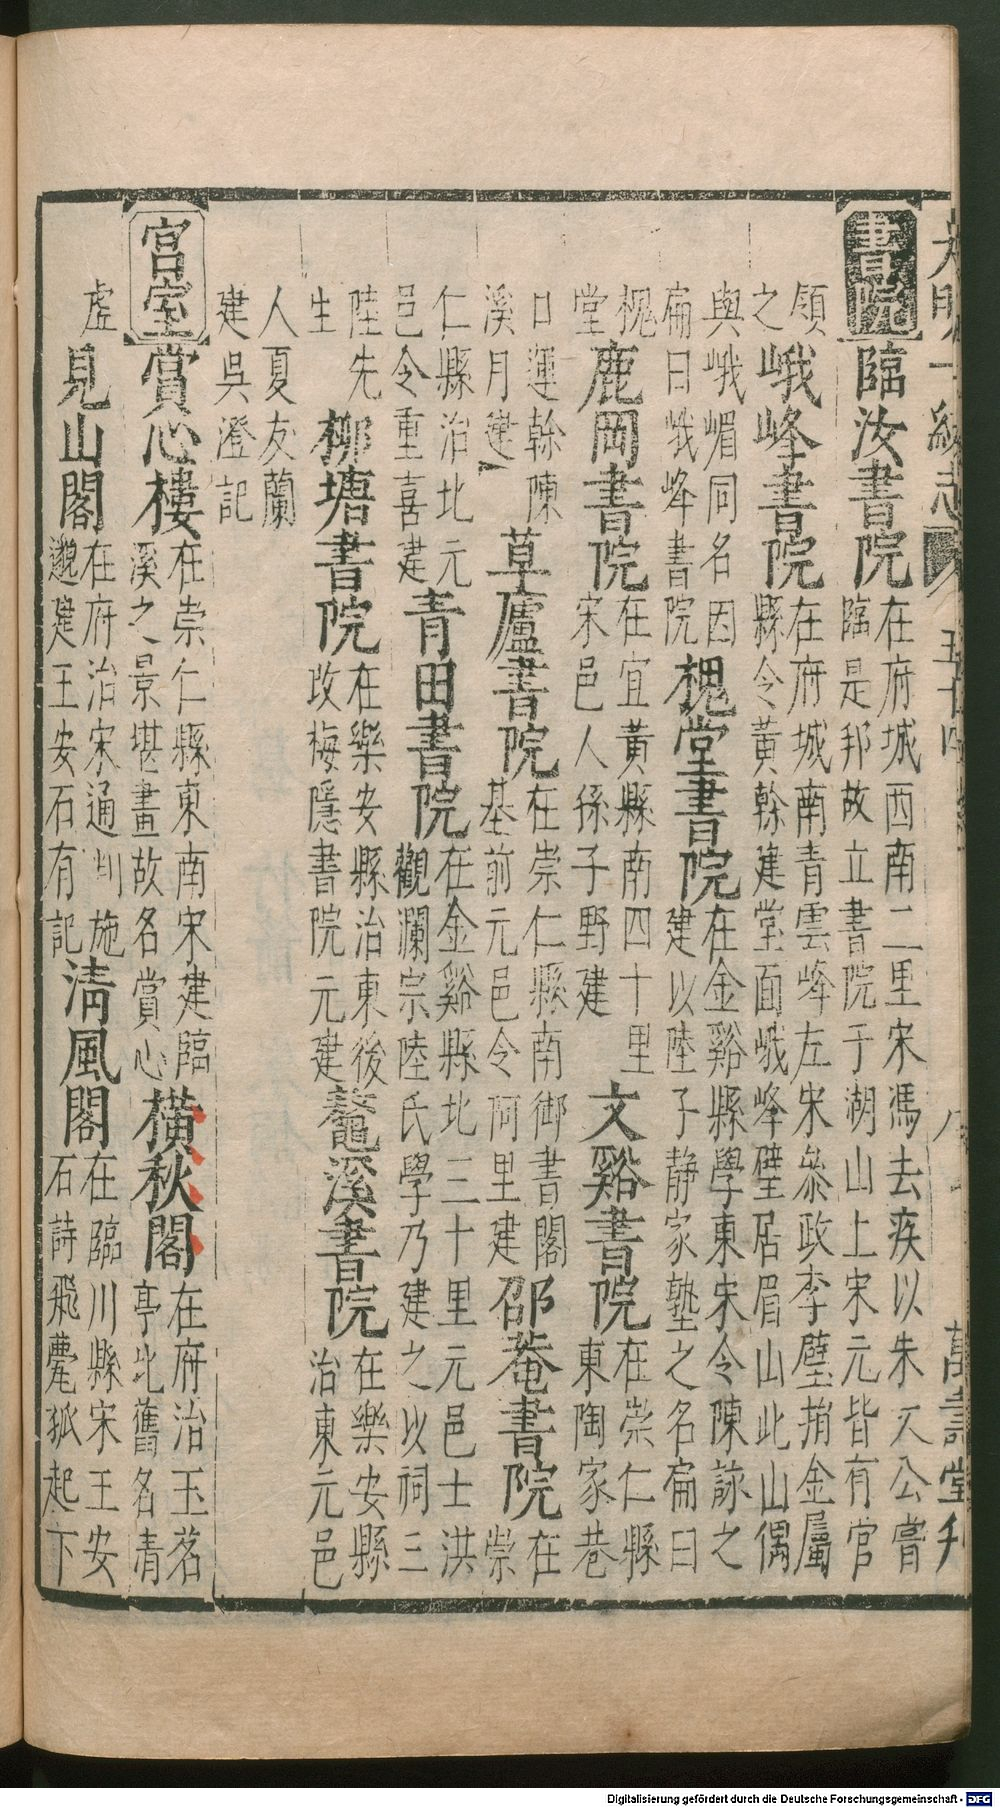 大明一統志 五十四 萬壽堂刊
書院 臨汝書院 在府城西南二里宋馮去疾以朱文公嘗臨是邦故立書院于湖山上宋元皆有官
領之 峨峰書院 在府城南青雲峰左宋叅政李壁捐金屬縣令黃榦建堂面峨峰壁居眉山此山偶
與峨嵋同名因扁曰峨峰書院 槐堂書院 在金谿縣學東宋令陳詠之建以陸子靜家塾之名扁曰
槐堂 鹿岡書院 在宜黃縣南四十里宋邑人孫子野建 文谿書院 在崇仁縣東陶家巷
口運幹陳溪月建 草廬書院 在崇仁縣南御書閣基前元邑令阿里建 邵菴書院 在崇
仁縣治北元邑令重喜建 青田書院 在金谿縣北三十里元邑士洪觀瀾宗陸氏學乃建之以祠三
陸先生 柳塘書院 在樂安縣治東後改梅隱書院元建 鼇溪書院 在樂安縣治東元邑
人夏友蘭建吳澄記
宮室 賞心樓 在崇仁縣東南宋建臨溪之景堪畫故名賞心 橫秋閣 在府治玉茗亭北舊名清
虛 見山閣 在府治宋通判施邈建王安石有記 清風閣 在臨川縣宋王安石詩飛甍孤起下
Digitalisierung gefördert durch die Deutsche Forschungsgemeinschaft - DFG